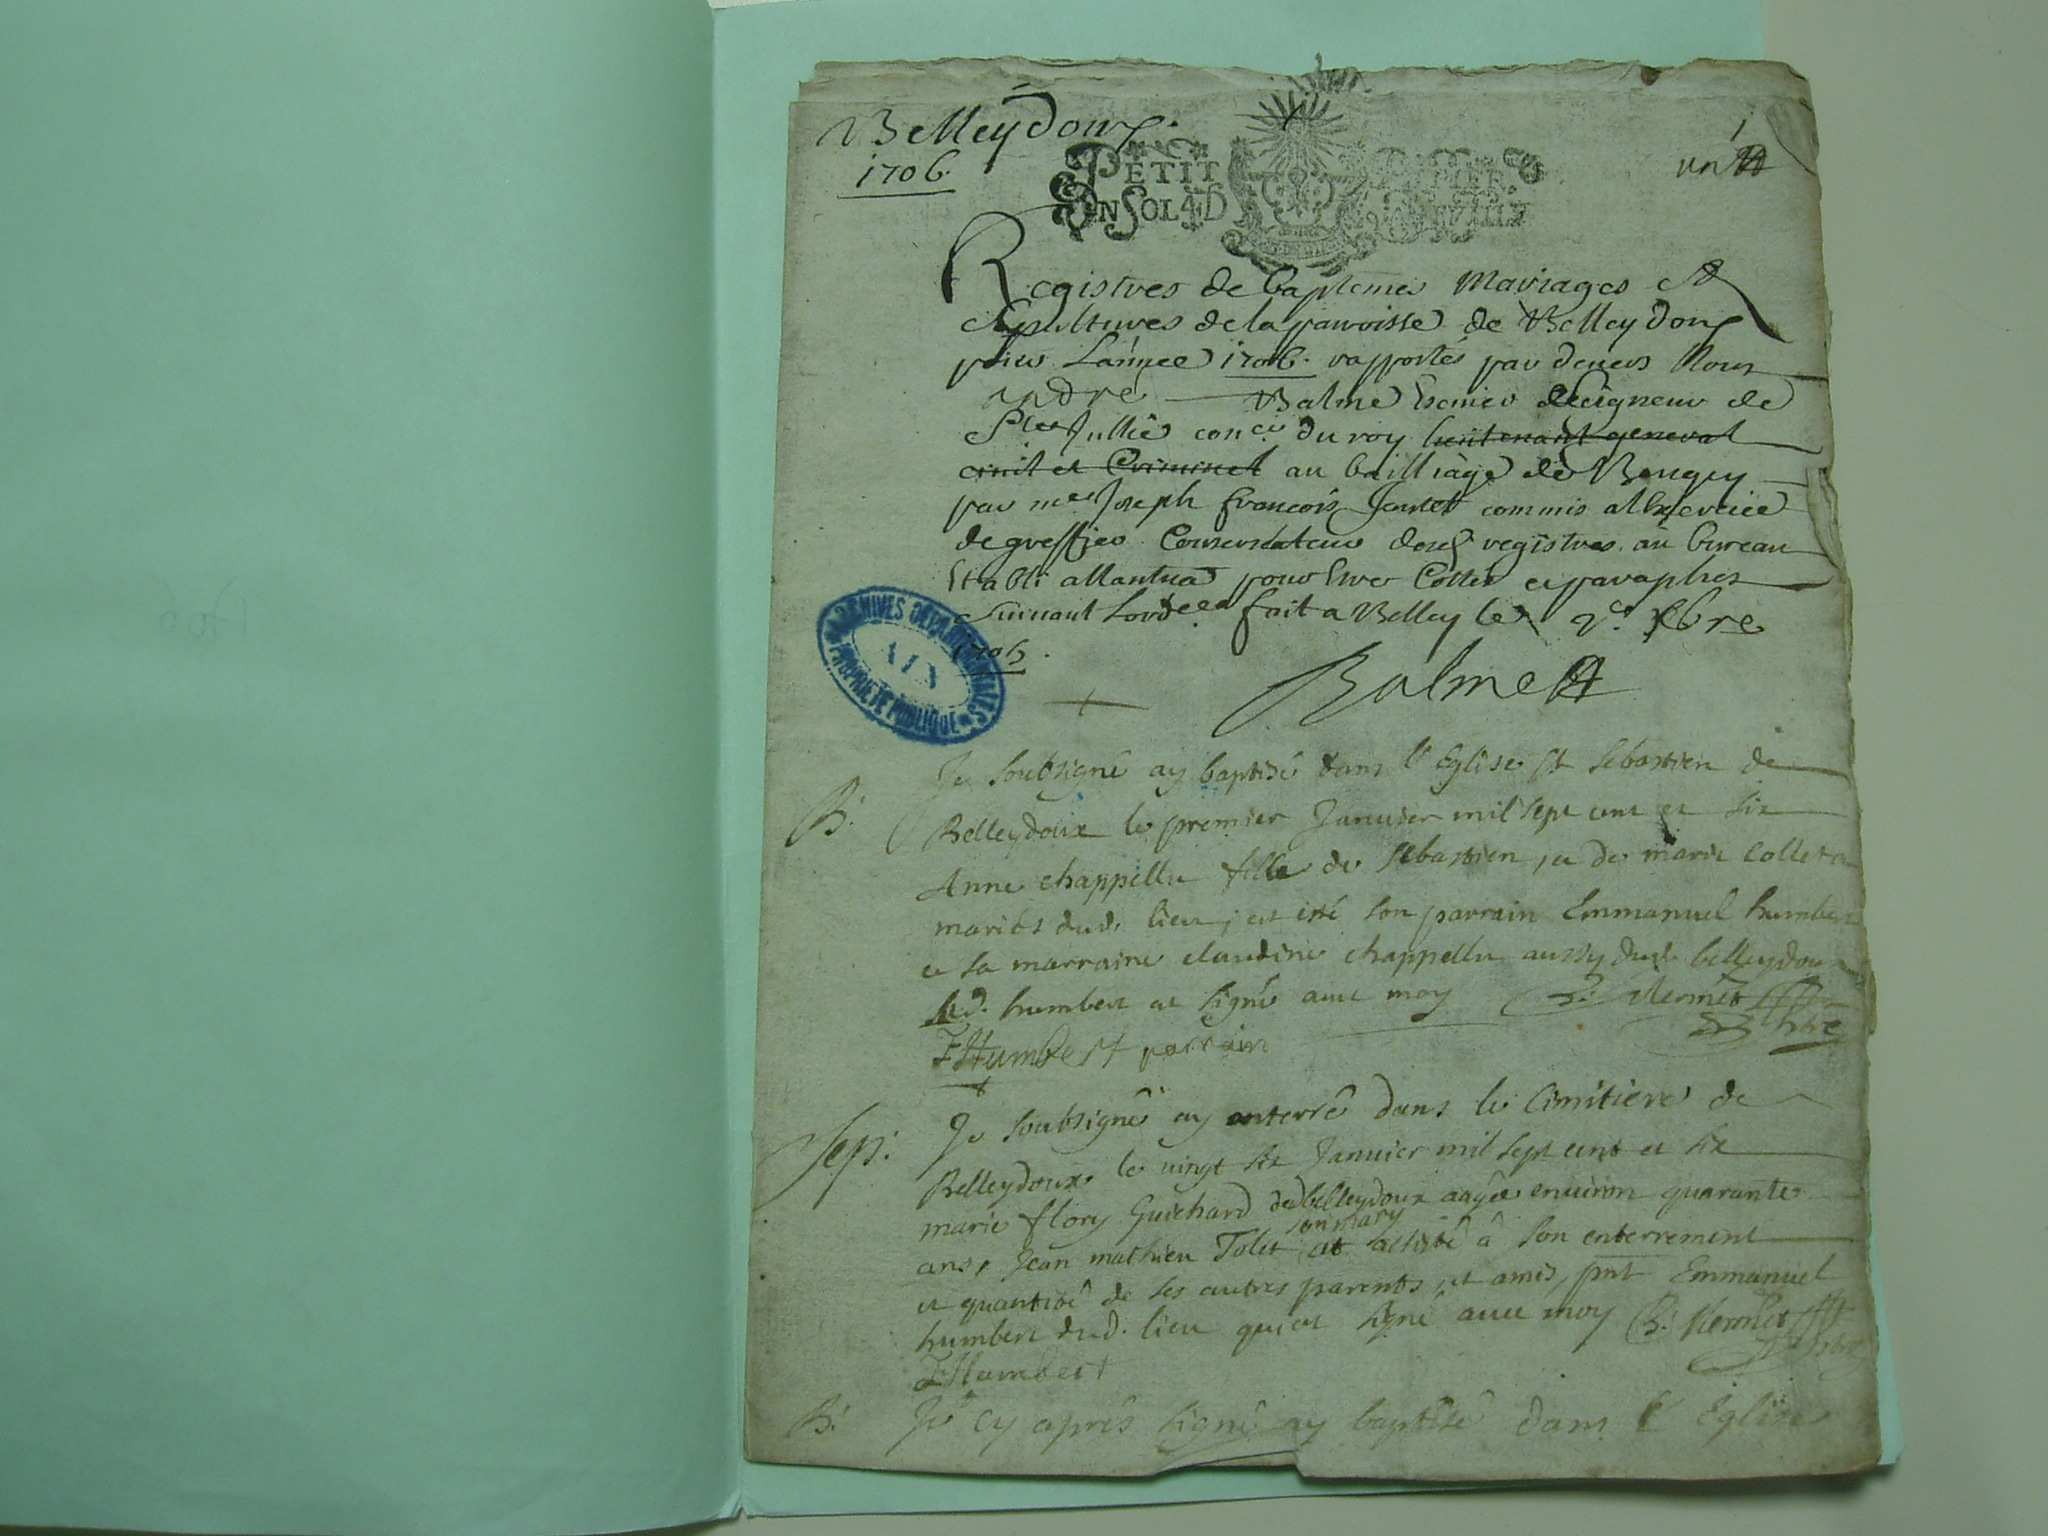 Belleydoux
1706.
1
un
PETIT PAPIER
UN SOL 4 D
Registres de baptemes Mariages et
Sepultures de la parroisse de Belleydoux
pour L'année 1706. rapportés par devers Nous
andre Balme Escuier Seigneur de
Stes Jullie coner. du roy lieutenant general
civil et Criminel au bailliage de Beugey
par me. Joseph francois Jantet commis a l'exercice
de greffier Conservateur desd registres au bureau
Etabli a Nantua pour Etre Cottés et paraphes
Suivant Lord.ce fait a Belley le 2e. xbre
1705.
Balme
ARCHIVES DEPARTEMENTALES
AIN
PROPRIETE PUBLIQUE
B.
Je soubsigné ay baptisé dans l'Eglise St Sebastien de
Belleydoux le premier Janvier mil sept cent et six
Anne chappellu fille de Sebastien, et de marie Collet
mariés dud. lieu, at esté son parrain Emmanuel humbert
et sa marraine claudine chappellu aussy dud. belleydoux
led. humbert at signé avec moy B. Mermet
ptre
E Humbert parrain
Sep:
Je soubsigné ay enterré dans le Cimitiere de
Belleydoux le vingt six Janvier mil sept cent et six
marie flory Guichard de belleydoux aagée environ quarante
ans, Jean mathieu Tolet son mary at assisté â son enterrement
et quantité de ses autres parents, et amis, pnt Emmanuel
humbert dud. lieu qui at signé avec moy B. Mermet
ptre
E Humbert
B.
Je cy aprés signé ay baptisé dans l'Eglise